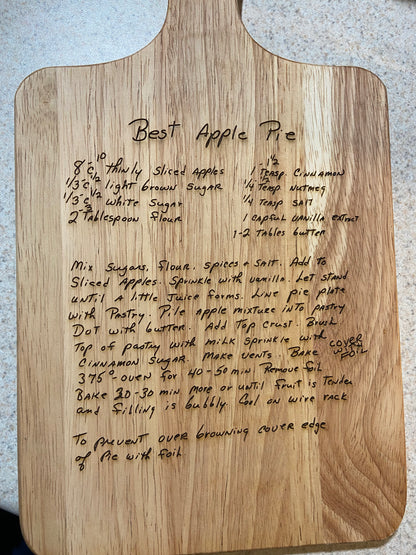 Best Apple Pie
8-10 c thinly sliced apples
1/3-1/2 c light brown sugar
1/3-1/2 c white sugar
2-3 Tablespoon flour
1-1 1/2 Teasp. Cinnamon
1/4-1/2 Teasp Nutmeg
1/4 Teasp Salt
1 capful vanilla extract
1-2 Tables butter
Mix sugars, flour, spices + salt. Add to
sliced apples. Sprinkle with vanilla. Let stand
until a little juice forms. Line pie plate
with pastry. Pile apple mixture into pastry
Dot with butter. Add Top crust. Brush
Top of pastry with milk sprinkle with
cinnamon sugar. Make vents. Bake cover w/ foil
375° oven for 40-50 min Remove foil
Bake 20-30 min more or until fruit is tender
and filling is bubbly. Cool on wire rack
To prevent over browning cover edge
of pie with foil